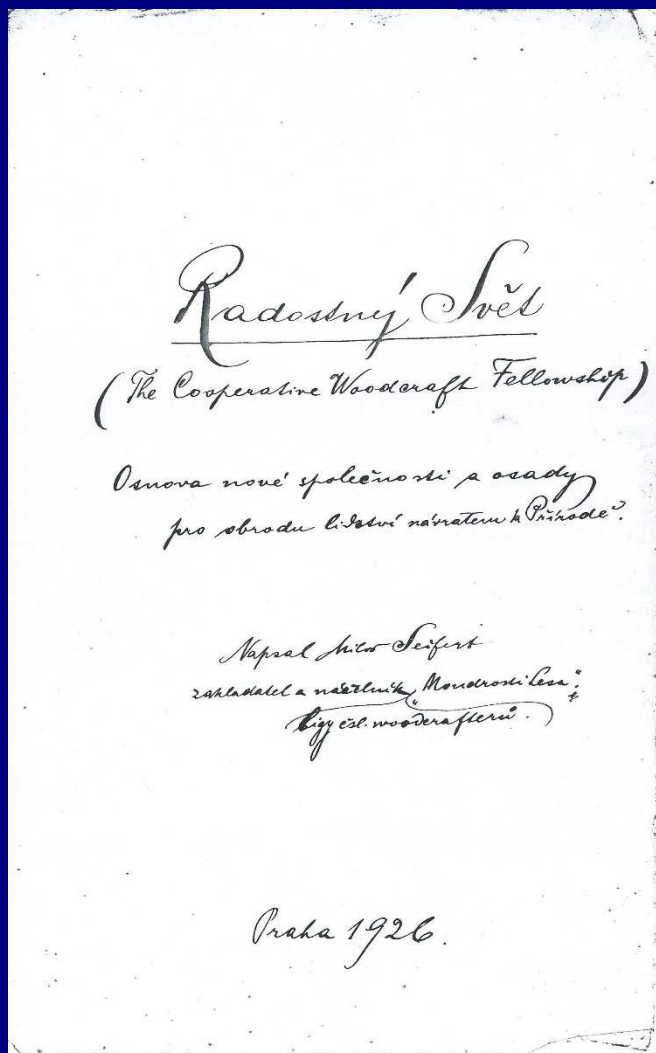 Radostný Svět
(The Cooperative Woodcraft Fellowship)
Osnova nové společnosti a osady
pro obrodu lidství návratem k Přírodě.
Napsal Miloš Seifert
zakladatel a náčelník „Moudrosti Lesa“
Ligy čsl. woodcrafterů.
Praha 1926.